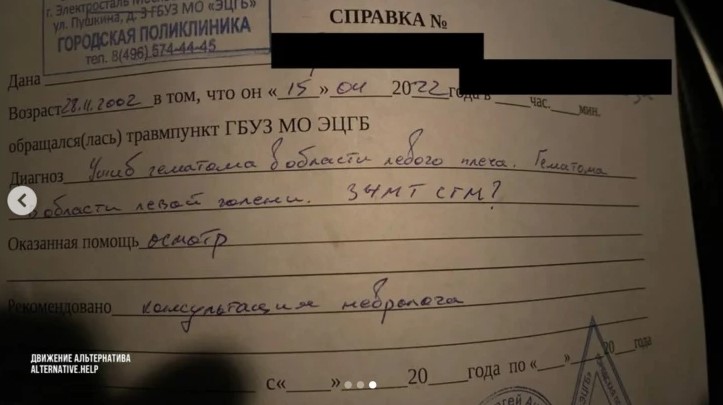 г. Электросталь
ул. Пушкина, д. 3 ГБУЗ МО «ЭЦГБ»
ГОРОДСКАЯ ПОЛИКЛИНИКА
тел. 8(496) 574-44-45
СПРАВКА №
Дана
Возраст 28.11.2002 в том, что он « 15 » 04 2022 года в ____ час. ____ мин.
обращался(лась) травмпункт ГБУЗ МО ЭЦГБ
Диагноз Ушиб гематома в области левого плеча. Гематома
в области левой голени. ЗЧМТ СГМ?
Оказанная помощь осмотр
Рекомендовано консультация невролога
ДВИЖЕНИЕ АЛЬТЕРНАТИВА
ALTERNATIVE.HELP
с«____»____20____года по «____»____20____года
«ЭЦГБ»